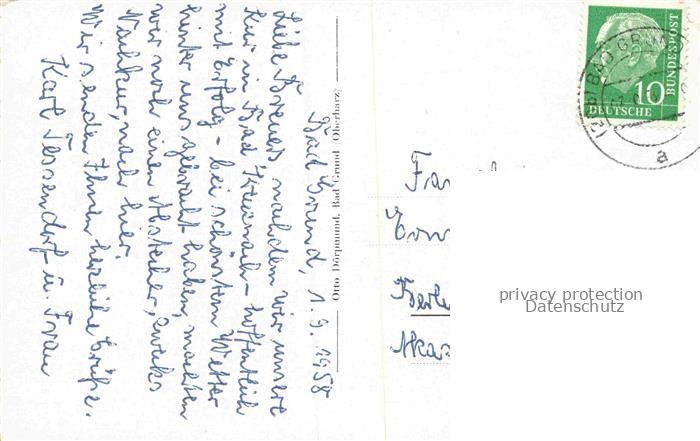 Bad Grund, 1.9.1958
Liebe Breuers, nachdem wir unsere
Kur in Bad Kreuznach - hoffentlich
mit Erfolg - bei schönstem Wetter
hinter uns gebracht haben, machten
wir noch einen Abstecher, zwecks
Nachkur, nach hier.
Wir senden Ihnen herzliche Grüße.
Karl Tessendorf u. Frau
Otto Dörpmund, Bad Grund (Oberharz)
DEUTSCHE
BUNDESPOST
10
BAD GRUND
a
Fa
Berl
privacy protection
Datenschutz